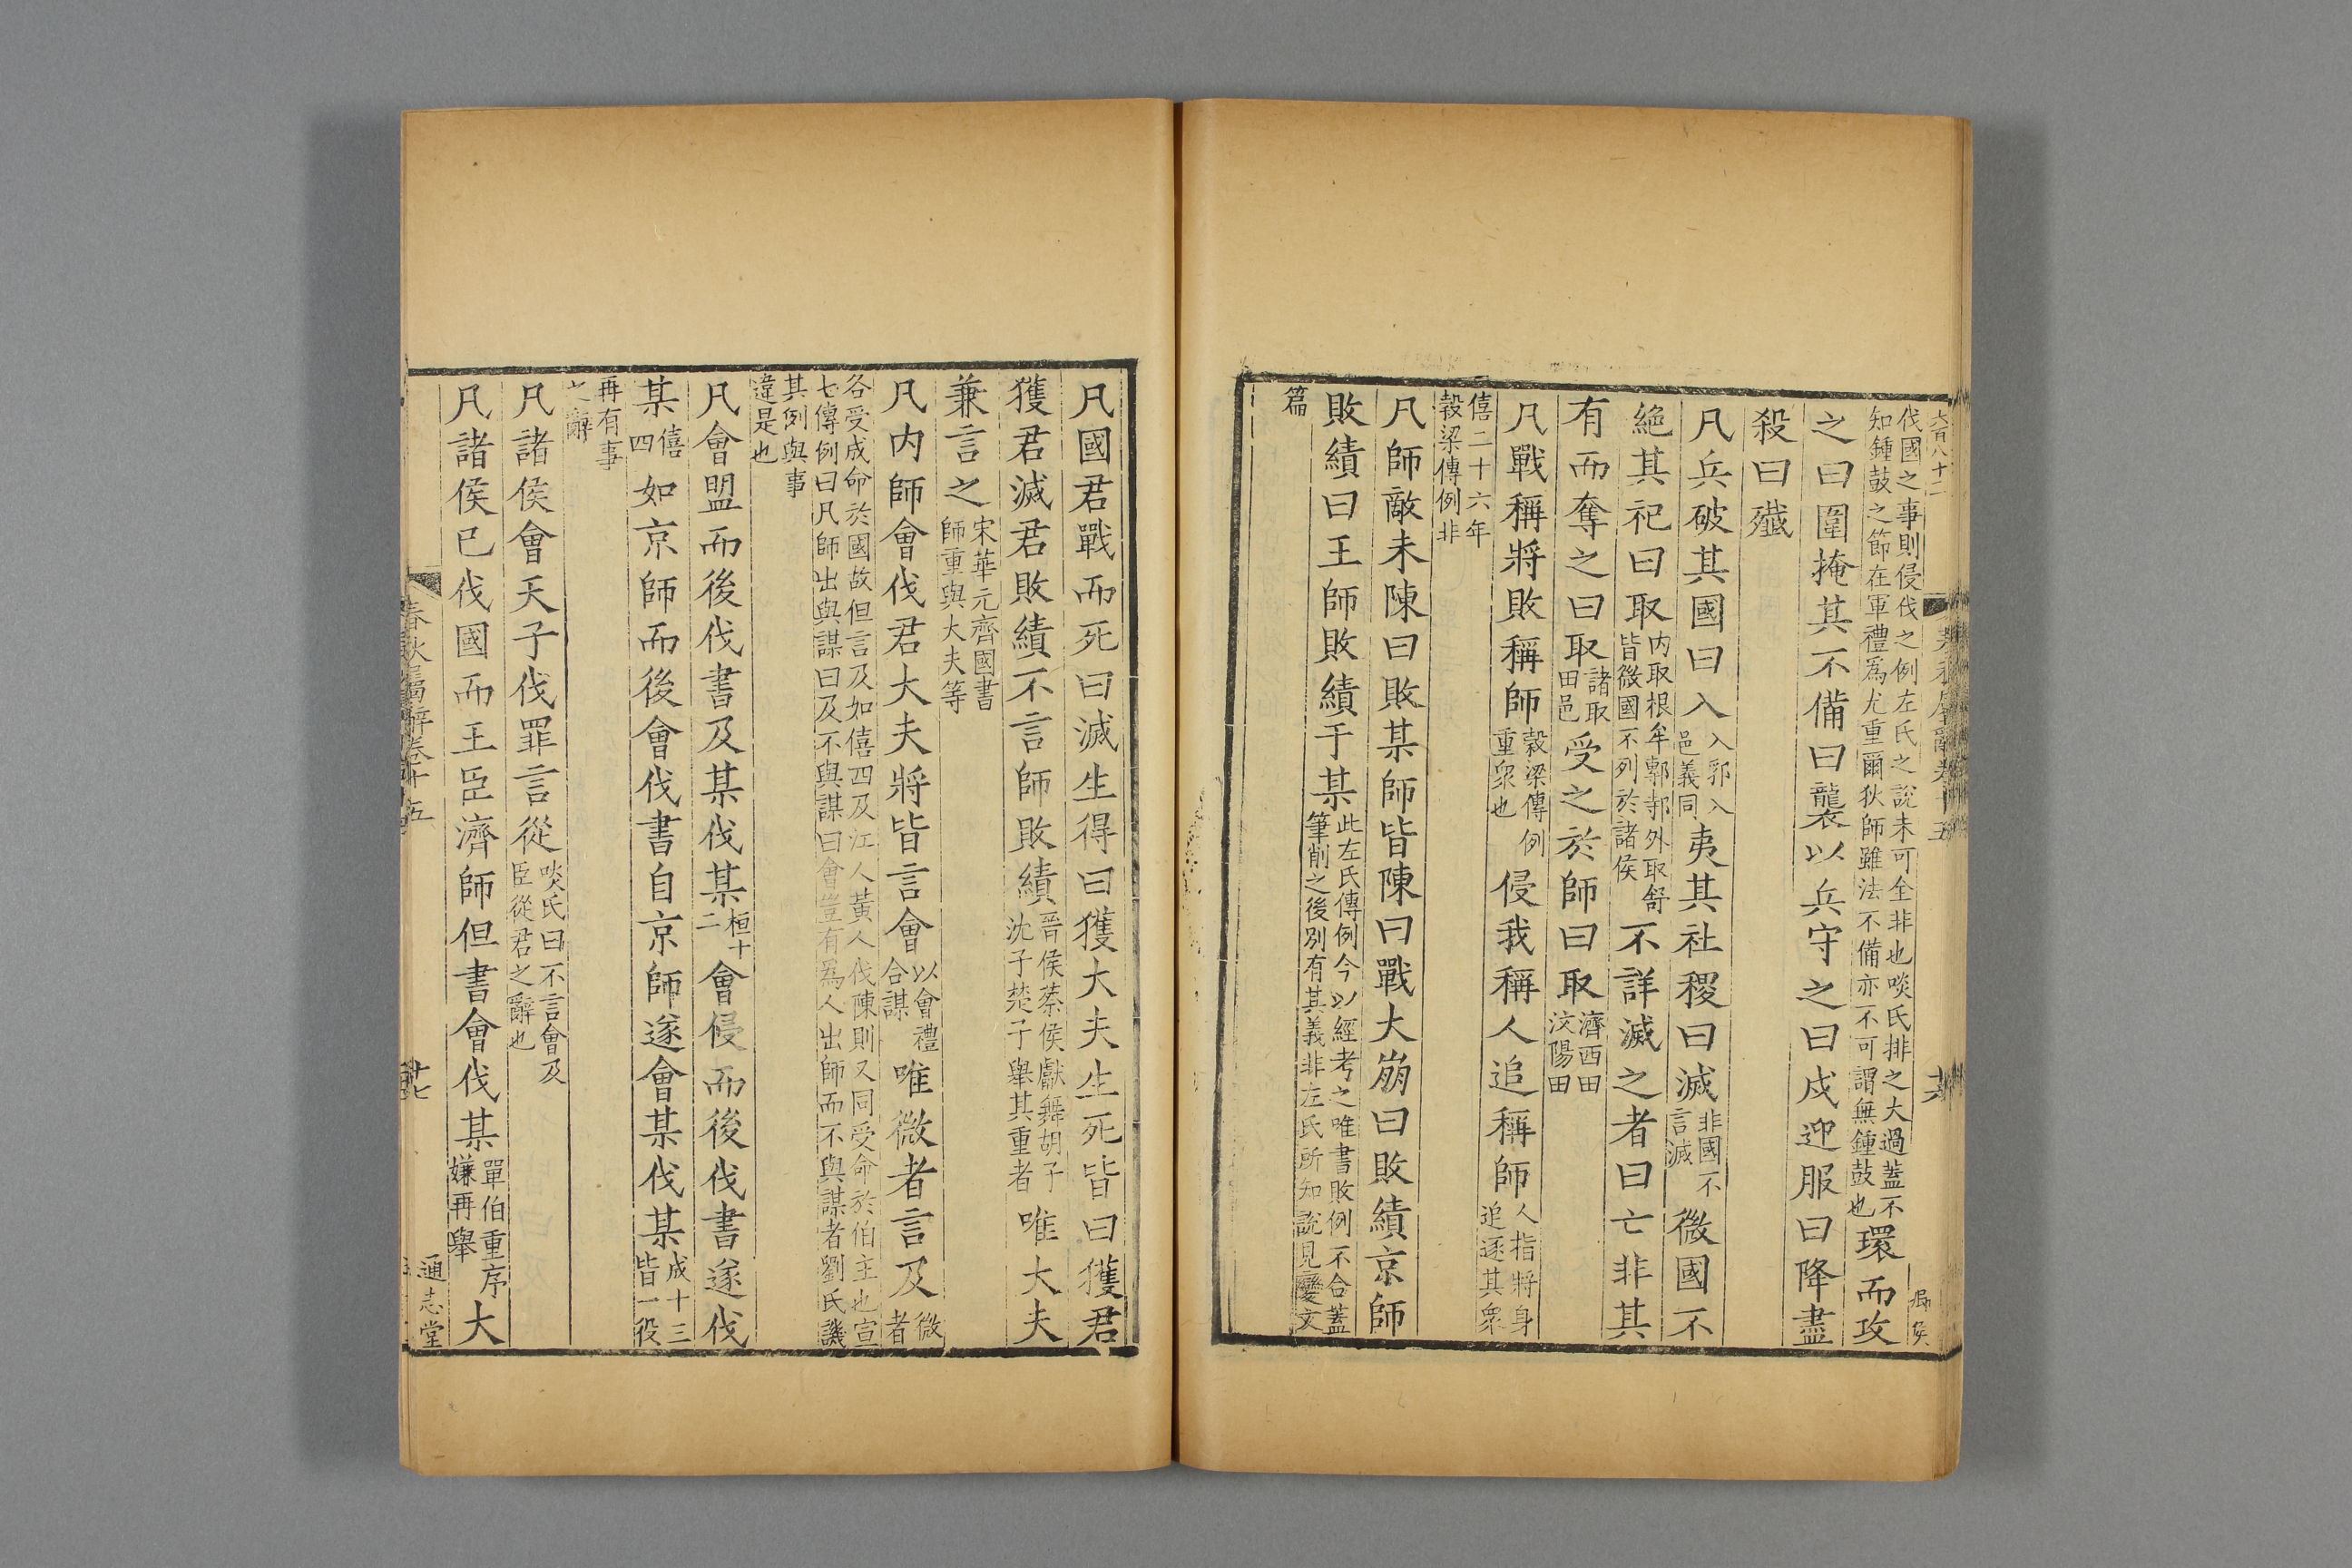 六百八十二
春秋屬辭卷十五
十六
伐國之事則侵伐之例左氏之說未可全非也啖氏排之大過蓋不
知鍾鼓之節在軍禮爲尤重爾狄師雖法不備亦不可謂無鍾鼓也
環而攻
之曰圍掩其不備曰襲以兵守之曰戍迎服曰降盡
殺曰殲
凡兵破其國曰入入郛入
邑義同夷其社稷曰滅非國不
言滅微國不
絕其祀曰取内取根牟鄟邿外取舒
皆微國不列於諸侯不詳滅之者曰亡非其
有而奪之曰取諸取
田邑受之於師曰取濟西田
汶陽田
凡戰稱將敗稱師穀梁傳例
重衆也侵我稱人追稱師人指將身
追逐其衆
僖二十六年
穀梁傳例非
凡師敵未陳曰敗某師皆陳曰戰大崩曰敗績京師
敗績曰王師敗績于某此左氏傳例今以經考之唯書敗例不合蓋
筆削之後別有其義非左氏所知說見變文
篇
凡國君戰而死曰滅生得曰獲大夫生死皆曰獲君
獲君滅君敗績不言師敗績晉侯蔡侯獻舞胡子
沈子楚子舉其重者唯大夫
兼言之宋華元齊國書
師重與大夫等
凡内師會伐君大夫將皆言會以會禮
合謀唯微者言及微
者
各受成命於國故但言及如僖四及江人黃人伐陳則又同受命於伯主也宣
七傳例曰凡師出與謀曰及不與謀曰會豈有爲人出師而不與謀者劉氏譏
其例與事
違是也
凡會盟而後伐書及某伐某桓十
二會侵而後伐書遂伐
某僖
四如京師而後會伐書自京師遂會某伐某成十三
皆一役
再有事
之辭
凡諸侯會天子伐罪言從啖氏曰不言會及
臣從君之辭也
凡諸侯已伐國而王臣濟師但書會伐某單伯重序
嫌再舉大
春秋屬辭卷十五
十七
通志堂